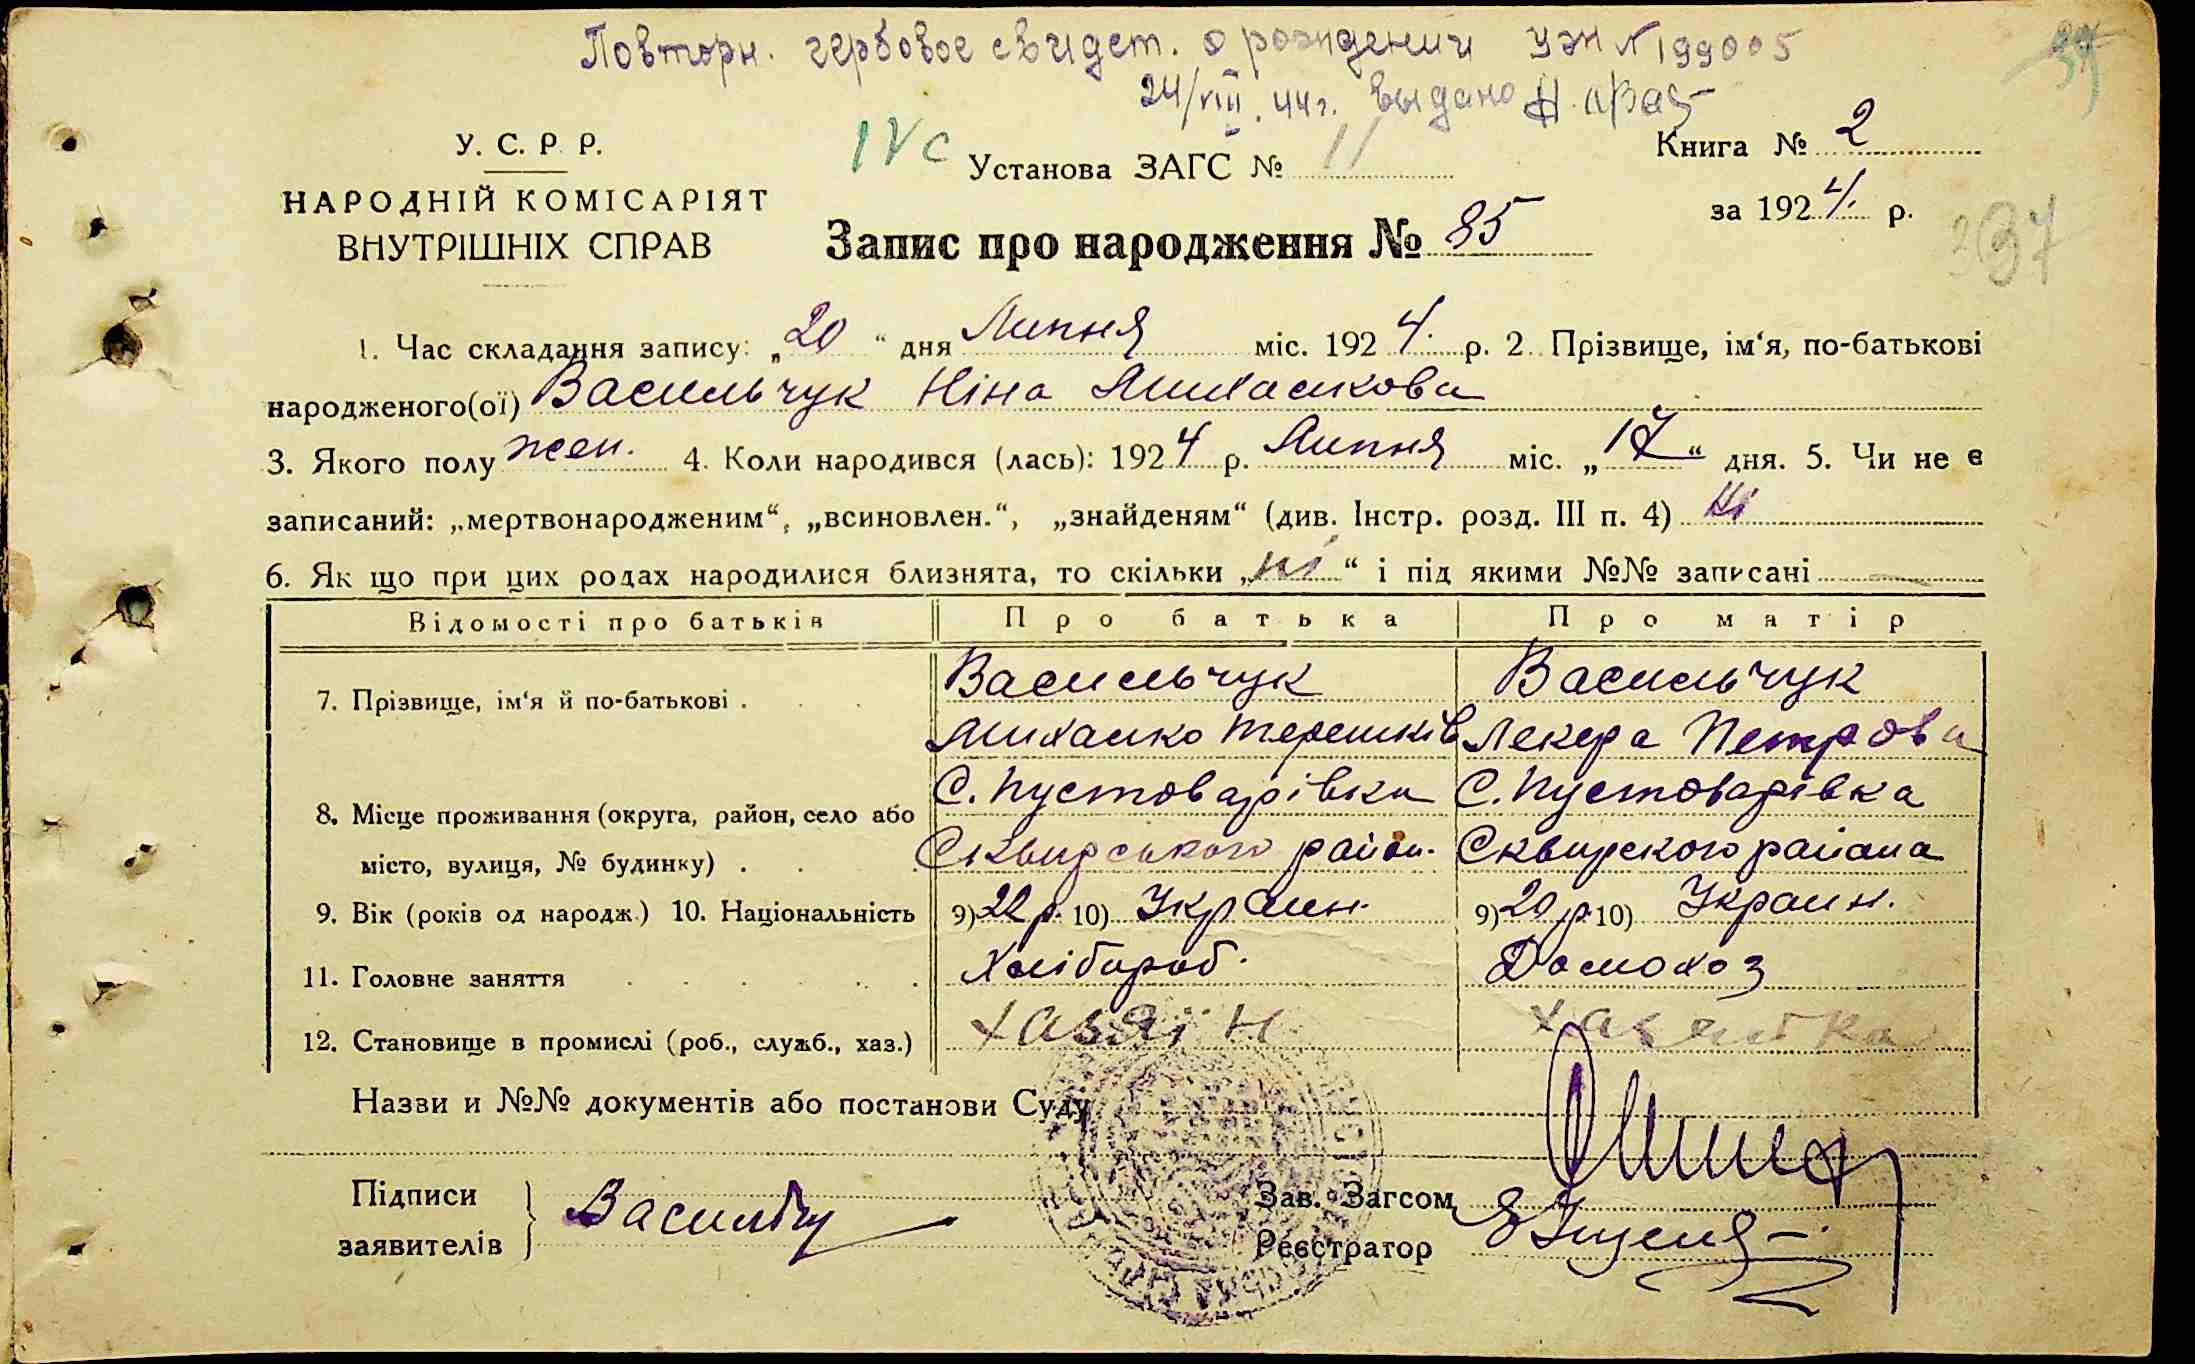 Повторн. гербовое свидет. о рождении УЖ N 199005
24/VIII. 44 г. выдано
37
У. С. Р. Р.
НАРОДНІЙ КОМІСАРІЯТ
ВНУТРІШНІХ СПРАВ
IVC
Установа ЗАГС № 11
Книга № 2
за 1924. р.
37
Запис про народження № 85
1. Час складання запису: „20“ дня Липня міс. 1924. р. 2. Прізвище, ім‘я, по-батькові
народженого(ої) Васильчук Ніна Михалкова
3. Якого полу жен. 4. Коли народився (лась): 1924 р. Липня міс. „17“ дня. 5. Чи не є
записаний: „мертвонародженим“, „всиновлен.“, „знайденям“ (див. Інстр. розд. III п. 4) Ні
6. Як що при цих родах народилися близнята, то скільки „ні“ і під якими №№ записані
Відомості про батьків Про батька Про матір
7. Прізвище, ім‘я й по-батькові . Васильчук Васильчук
Михалко Терешків Лекера Петрова
8. Місце проживання (округа, район, село або С. Пустоварівка С. Пустоварівка
місто, вулиця, № будинку) . Сквирського район. Сквирского района
9. Вік (років од народж.) 10. Національність 9) 22 р. 10) Украин. 9) 20 р. 10) Украин.
11. Головне заняття Хлібороб. Домохоз
12. Становище в промислі (роб., служб., хаз.) хазяїн хазяйка
Назви и №№ документів або постанови Суду
Підписи
заявителів } Васильчу
Зав. Загсом
Реєстратор